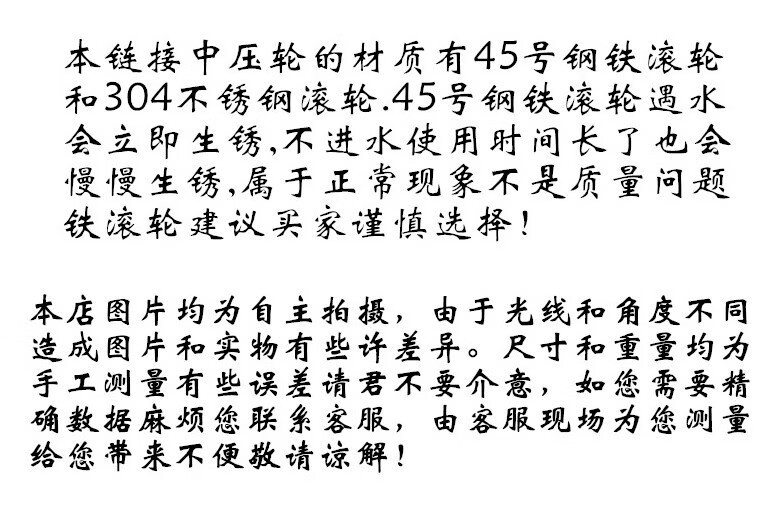 本链接中压轮的材质有45号钢铁滚轮
和304不锈钢滚轮.45号钢铁滚轮遇水
会立即生锈,不进水使用时间长了也会
慢慢生锈,属于正常现象不是质量问题
铁滚轮建议买家谨慎选择!
本店图片均为自主拍摄，由于光线和角度不同
造成图片和实物有些许差异。尺寸和重量均为
手工测量有些误差请君不要介意，如您需要精
确数据麻烦您联系客服，由客服现场为您测量
给您带来不便敬请谅解!